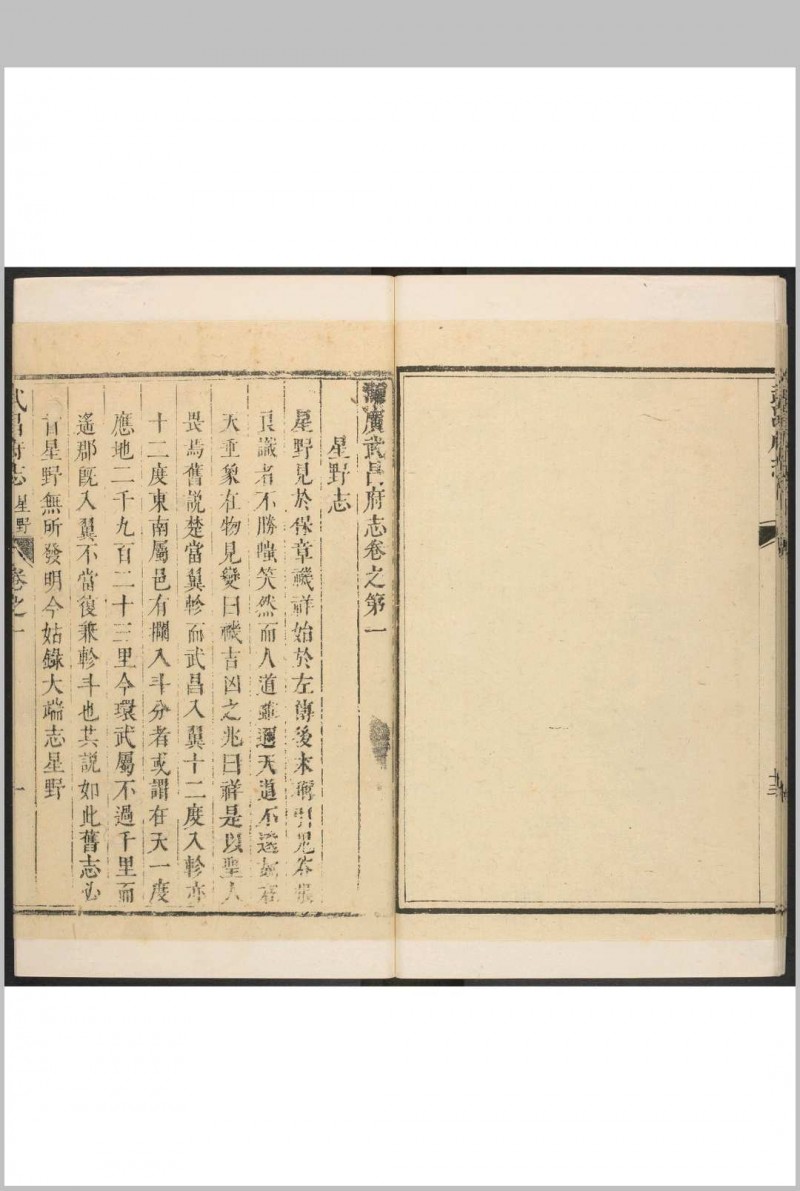 湖廣武昌府志卷之第一
星野志
星野見於保章禨祥始於左傳後末引
良識者不勝嗤笑然而人道雖邇天道不
天垂象在物見變曰禨吉凶之兆曰祥是以聖人
畏焉舊說楚當翼軫而武昌入翼十二度入軫亦
十二度東南屬邑有攔入斗分者或謂在天一度
應地二千九百二十三里今環武屬不過千里而
遙郡既入翼不當復兼軫斗也其說如此舊志必
首星野無所發明今姑錄大端志星野
武昌府志 星野 卷之一 一